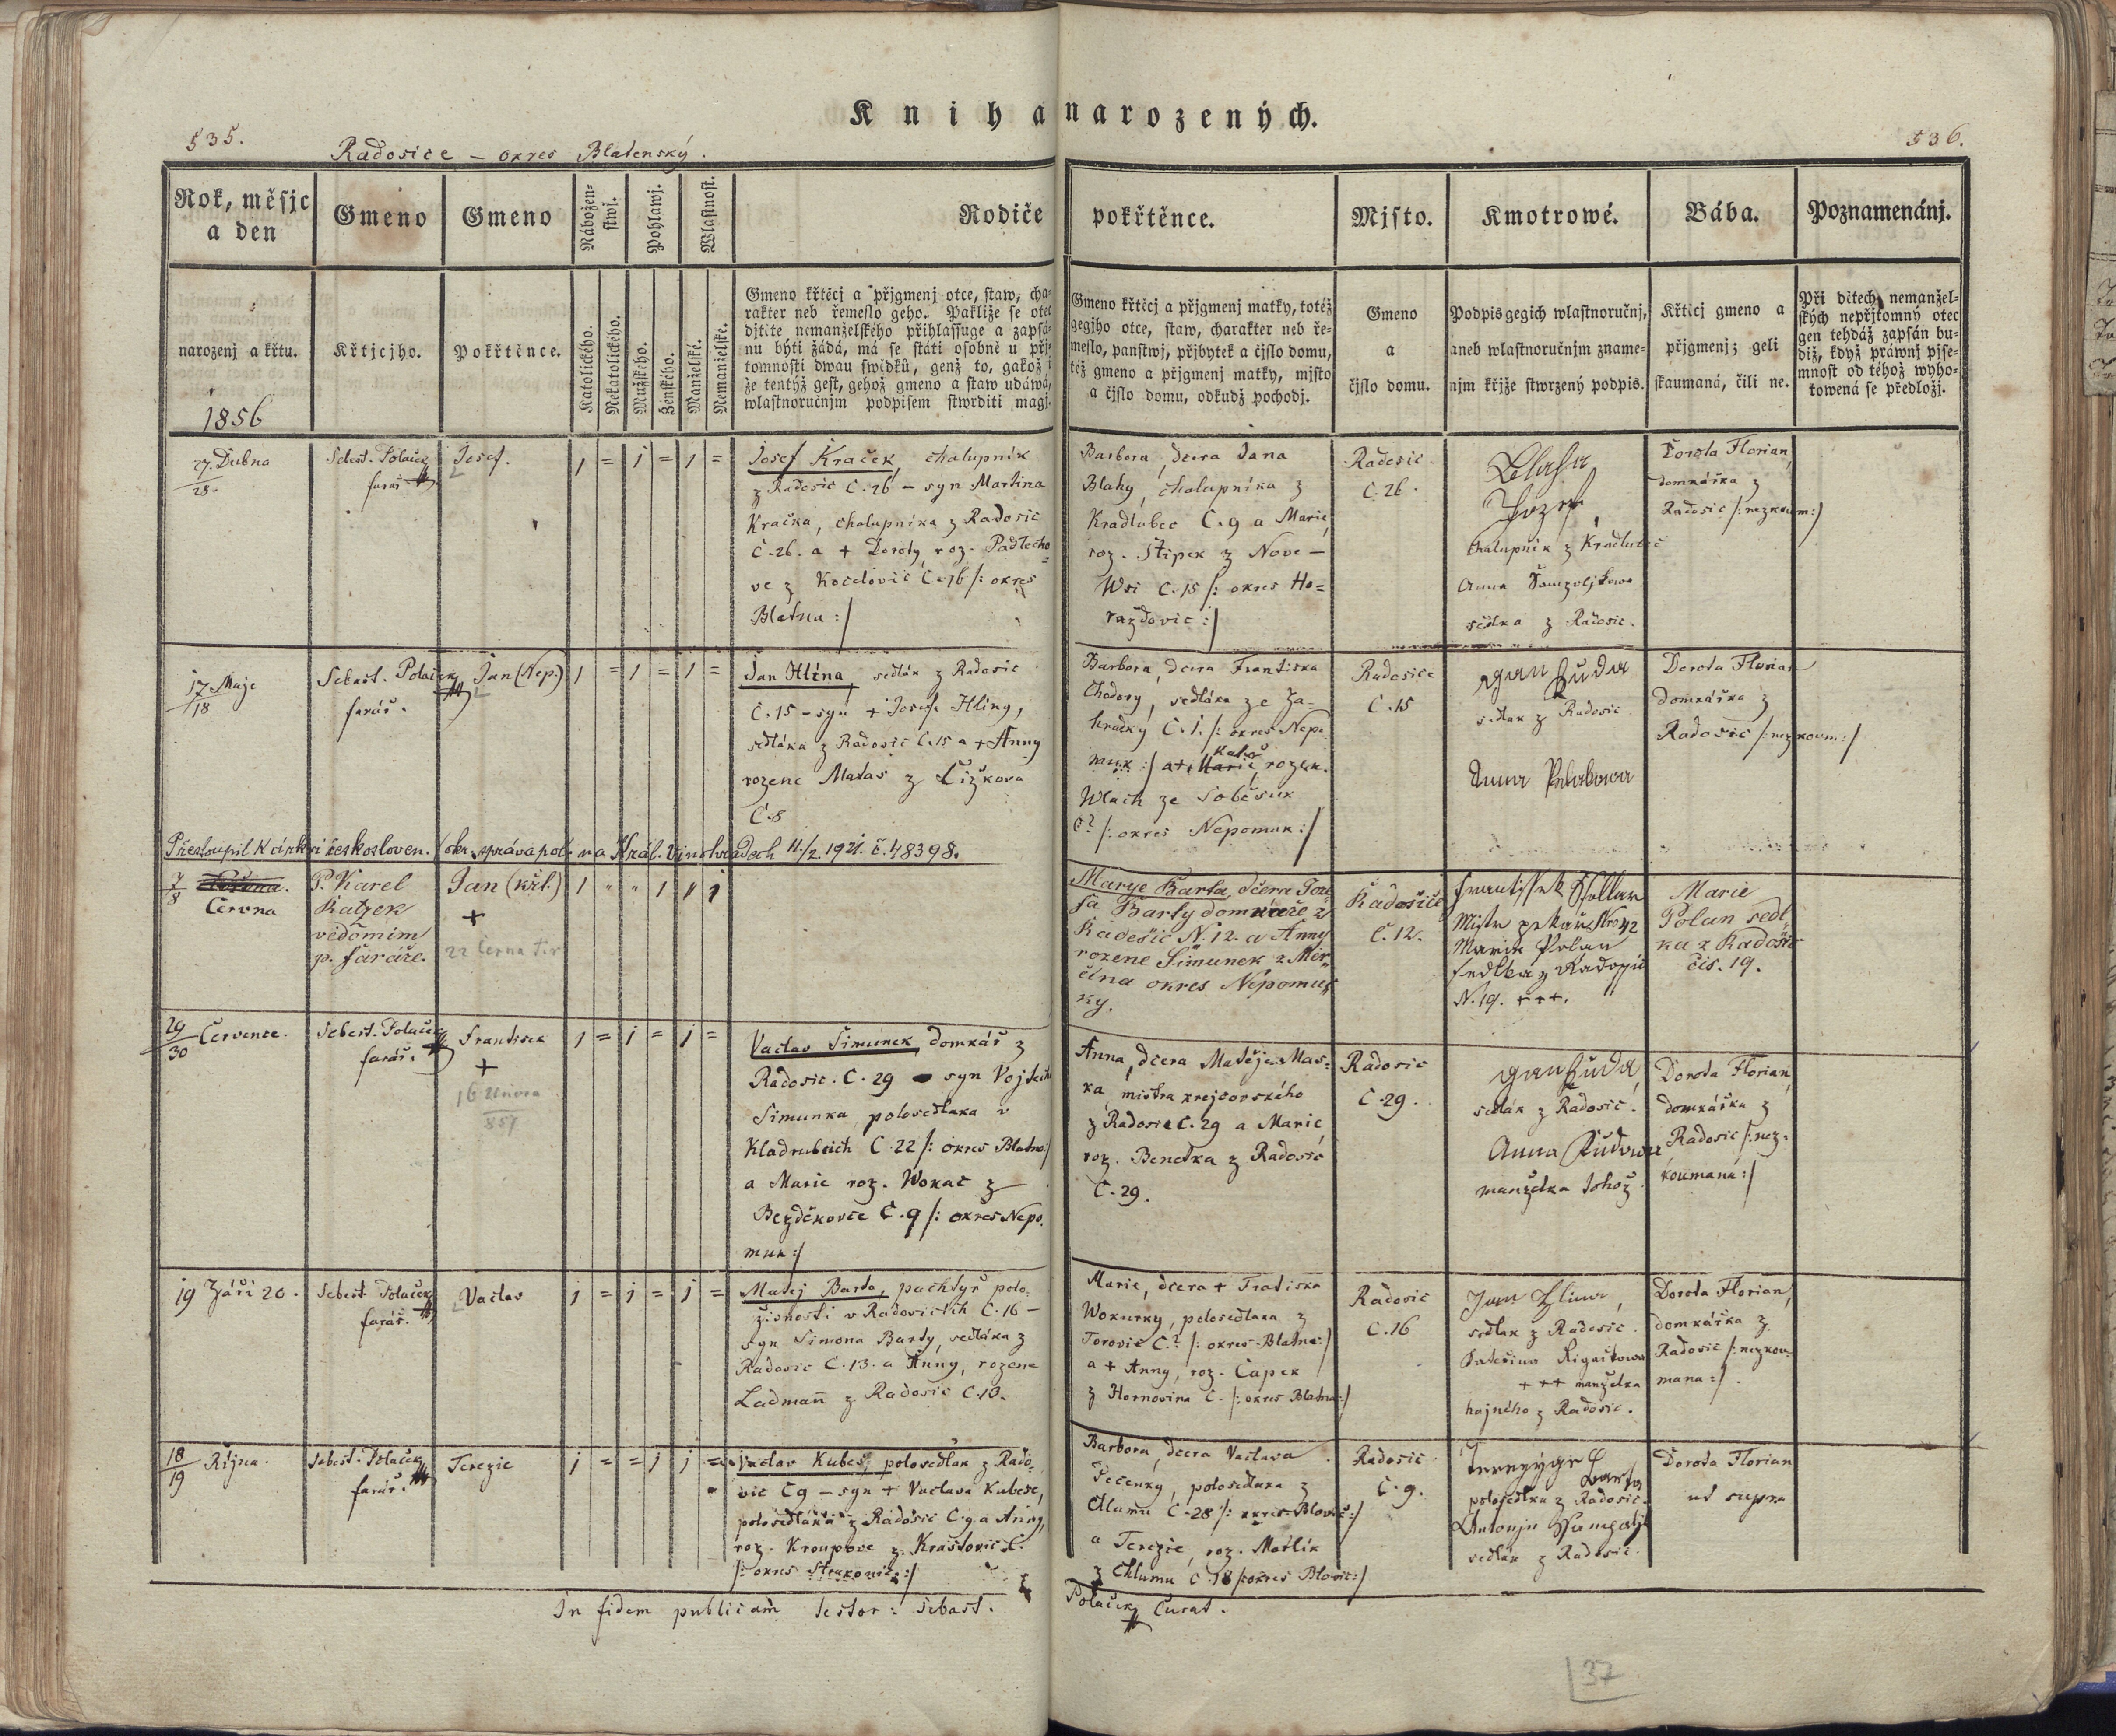 Kniha narozených.
535.
Radosice – okres Blatenský.
536.
Rok, měsjc
a den
Gmeno
Gmeno
Nábožen-
stwj.
Pohlawj.
Wlastnost.
Rodiče
pokřtěnce.
Mjsto.
Kmotrowé.
Bába.
Poznamenánj.
narozenj a křtu.
1856
Křtjcjho.
Pokřtěnce.
Katolického.
Nekatolického.
Mužského.
Ženského.
Manželské.
Nemanželské.
Gmeno křtěcj a přjgmenj otce, staw, cha-
rakter neb řemeslo geho. Pakliže se otec
djtěte nemanželského přihlassuge a zapsá-
nu býti žádá, má se státi osobně u přj-
tomnosti dwau swědků, genž to, gakož i
že tentýž gest, gehož gmeno a staw udáwá,
wlastnoručnjm podpisem stwrditi magj.
Gmeno křtěcj a přjgmenj matky, totéž
gegjho otce, staw, charakter neb ře-
meslo, panstwj, přjbytek a čjslo domu,
též gmeno a přjgmenj matky, mjsto
a čjslo domu, odkudž pocházj.
Gmeno
a
čjslo domu.
Podpis gegich wlastnoručnj,
aneb wlastnoručnjm zname-
njm křjže stwrzený podpis.
Křticj gmeno a
přjgmenj; geli
skaumaná, čili ne.
Při dětech nemanžel-
ských nepřjtomný otec
gen tehdáž zapsán bu-
diž, když práwnj pjse-
mnost od téhož wyho-
towená se předložj.
27. Dubna
28.
Sebest. Polaček
farář
Josef.
1 = 1 = 1 =
Josef Kraček, chalupník
z Radosic C. 26 – syn Martina
Kračka, chalupníka z Radosic
C. 26. a + Doroty, roz. Padlecho
ve z Kocelovic C. 16 /: okres
Blatna :/
Barbora, dcera Jana
Blahy, chalupníka z
Kradlubec C. 9 a Marie,
roz. Štipek z Nove –
Wsi C. 15 /: okres Ho=
ražďovic :/
Radosic
C. 26.
Blaha
Jozef,
chalupník z Kradlubec
Anna
sedlka z Radosic.
Dorota Florian,
domkářka z
Radosic /: nezkoum :/
17 Maje
18
Sebast. Polaček
farář.
Jan (Nep.)
1 = 1 = 1 =
Jan Hlína, sedlák z Radosic
C. 15 – syn + Josefa Hliny,
sedláka z Radosic C. 15 a + Anny
rozene Matas z Čižkova
C. 8
Barbora, dcera Frantiska
Chodory, sedláka ze Za=
hradky C. 1. /: okres Nepo
muk :/ a + Marie, rozen.
Kate
Wlach ze Soběsuk
C? /: okres Nepomuk :/
Radosice
C. 15
Jan Žuda
sedlak z Radosic
Anna
Dorota Florian
domkářka z
Radosic /: nezkoum :/
Přestoupil k církvi českosloven. (okr. správa pol. na Král. Vinohradech 11./2. 1921. č. 48398.
7
8
Června
P. Karel
Katzek
vědomím
p. faráře.
Jan (křt.)
+
22 Června
1 " " 1 " 1
Marye Barta, dčera Joze
fa Barty domkáře z
Radešic N. 12. a Anny
rozene Šimunek z Mer-
čína okres Nepomus
ky.
Radošice
č. 12.
Frantissek
Mistr pekař Nro 42
Marie Polan
sedlka z Radossic
N. 19. +++.
Marie
Polan sedl
ka z Radošic
čis. 19.
29
30 Července.
Sebest. Polaček
farář.
Frantisek
+
16 Února
857
1 = 1 = 1 =
Vaclav Simunek, domkář z
Radosic. C. 29 syn Vojtecha
Simunka, polosedlaka v
Kladrubcich C. 22 /: okres Blatna :/
a Marie roz. Wokač z
Bezděkovce C. 9 /: okres Nepo.
muk :/
Anna, dcera Matěje Mas=
ka, mistra krejcovského
z Radosic C. 29 a Marie,
roz. Benetka z Radosic
C. 29.
Radosic
C. 29.
Jan Žuda,
sedlák z Radosic.
Anna Žudowa
manželka tohož
Dorota Florian,
domkářka z
Radosic /: nez=
koumaná :/
19 Září 20.
Sebest Polaček
farář.
Vaclav
1 = 1 = 1 =
Matej Barta, pachtyř polo-
živnosti v Radosicich C. 16 –
syn Simona Barty, sedláka z
Radosic C. 13. a Anny, rozene
Ladmañ z Radosic C. 10.
Marie, dcera + Fratiska
Wokurky, polosedlaka z
Torovic C.? /: okres Blatna :/
a + Anny, roz. Čapek
z Hornosina C. /: okres Blatna :/
Radosic
C. 16
Jan Hlina,
sedlak z Radosic.
Kateřina
+++ manželka
hajného z Radosic.
Dorota Florian,
domkářka z
Radosic /: nezkou
mana :/.
18
19 Října.
Sebest. Polaček
farář.
Terezie
1 = = 1 1 =
Vaclav Kubeš, polosedlak z Rado-
sic C 9 – syn + Vaclava Kubese,
polosedláka z Radosic C. 9. a Anny,
roz. Kroupove z Krastovic C.
/: okres Strakonice :/
Barbora, dcera Vaclava
Pečenky, polosedlaka z
Chlumu C. 28 /: okres Blovic :/
a Terezie, roz. Mašlik
z Chlumu C. 18 /: okres Blovic :/
Radosic
C. 9.
Barta
polosedlka z Radosic.
Antonjn
sedlák z Radosic.
Dorota Florian
ut supra
In fidem publicam testor: Sebast. Polaček Curat.
37